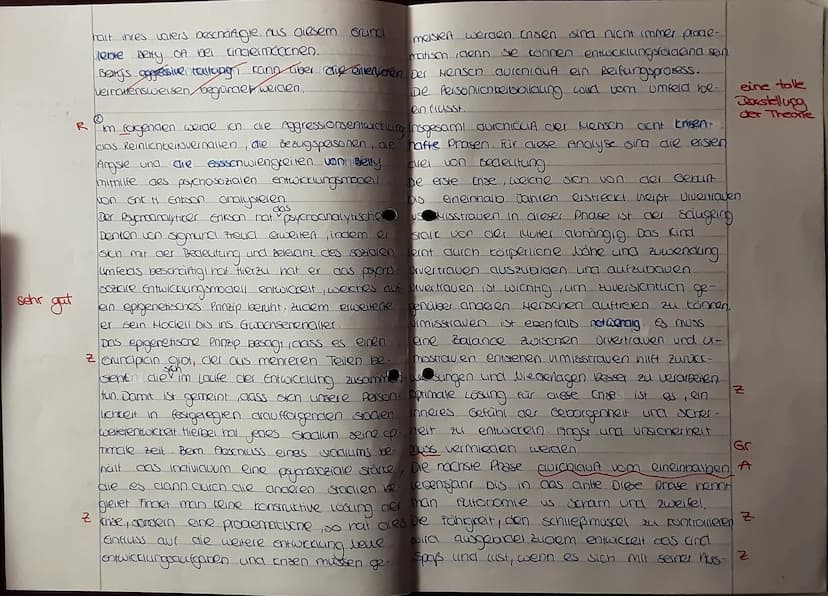 halt ihres Vaters beschäftigt. Aus diesem Grund
Betty oft bei Kindermädchen.
Bettys aggressive Haltung kann über die
Verhaltensweisen begründet werden.
②
R
Im folgenden werde ich die Aggressionsentwicklung,
das Reinlichkeitsverhalten, die Bezugspersonen, die
Ängste und die Essschwierigkeiten von Betty
mithilfe des psychosozialen Entwicklungsmodell
von Erik H. Erikson analysieren.
das
Der Psychoanalytiker Erikson hat psychoanalytische
Denken von Sigmund Freud erweitert, indem er
sich mit der Bedeutung und Relevanz des sozialen
Umfelds beschäftigt hat. Hierzu hat er das psycho-
soziale Entwicklungsmodell entwickelt, welches auf
sehr gut
ein epigenetisches Prinzip beruht, zudem erweiterte
er sein Modell bis ins Greisenalter.
Das epigenetische Prinzip besagt, dass es einen
Z
Grundplan gibt, der aus mehreren Teilen be-
sich
steht die im Laufe der Entwicklung zusammen
tun. Damit ist gemeint, dass sich unsere Persön-
lichkeit in festgelegten aufeinanderfolgenden Stadien
weiterentwickelt. Hierbei hat jedes Stadium seine op-
timale Zeit. Beim Abschluss eines Stadiums be-
hält das Individuum eine psychosoziale Stärke,
die es dann durch die anderen Stadien be-
gleitet. Findet man keine konstruktive Lösung der
Z
Krise, sondern eine problematische, so hat dies
Einfluss auf die weitere Entwicklung. Neue
Entwicklungsaufgaben und Krisen müssen ge-
meistert werden. Krisen sind nicht immer proble-
matisch, denn sie können entwicklungsfördernd sein.
Der Mensch durchläuft ein Reifungsprozess.
Die Persönlichkeitsbildung wird vom Umfeld be-
einflusst.
eine tolle
Darstellung
der Theorie
Insgesamt durchläuft der Mensch acht krisen-
hafte Phasen. Für diese Analyse sind die ersten
drei von Bedeutung.
Die erste Krise, welche sich von der Geburt
bis eineinhalb Jahren erstreckt heißt Urvertrauen
vs Urmisstrauen. In dieser Phase ist der Säugling
stark von der Mutter abhängig. Das Kind
lernt durch körperliche Nähe und Zuwendung
Urvertrauen auszubilden und aufzubauen.
Urvertrauen ist wichtig, um zuversichtlich ge-
genüber anderen Menschen auftreten zu können.
Urmisstrauen ist ebenfalls notwendig. Es muss
eine Balance zwischen Urvertrauen und Ur-
misstrauen entstehen. Urmisstrauen hilft Zurück-
weisungen und Niederlagen besser zu verarbeiten.
Z
Optimale Lösung für diese Krise ist es, ein
inneres Gefühl der Geborgenheit und Sicher-
heit zu entwickeln. Angst und Unsicherheit
Gr
muss vermieden werden.
A
Die nächste Phase durchläuft vom eineinhalben
Lebensjahr bis in das dritte. Diese Phase nennt
man Autonomie vs Scham und Zweifel.
Z
Die Fähigkeit, den Schließmuskel zu kontrollieren
wird ausgebildet. Zudem entwickelt das Kind
Z
Spaß und Lust, wenn es sich mit seiner Aus-